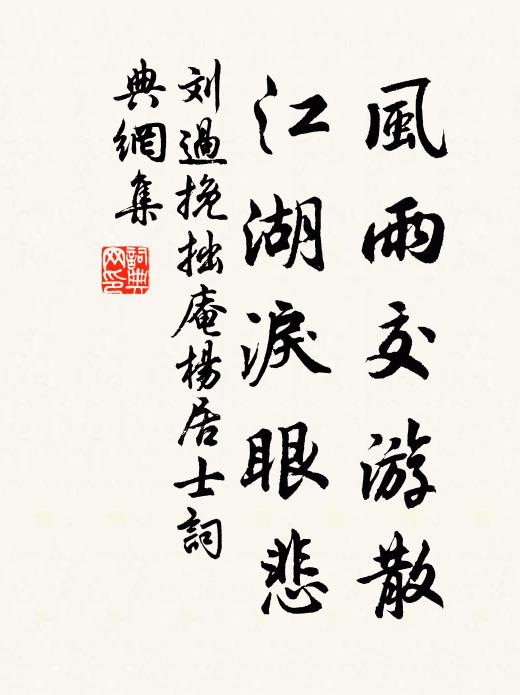 風雨交游散
江湖淚眼悲
刘過挽拙庵楊居士詞
典網集
詞典網印